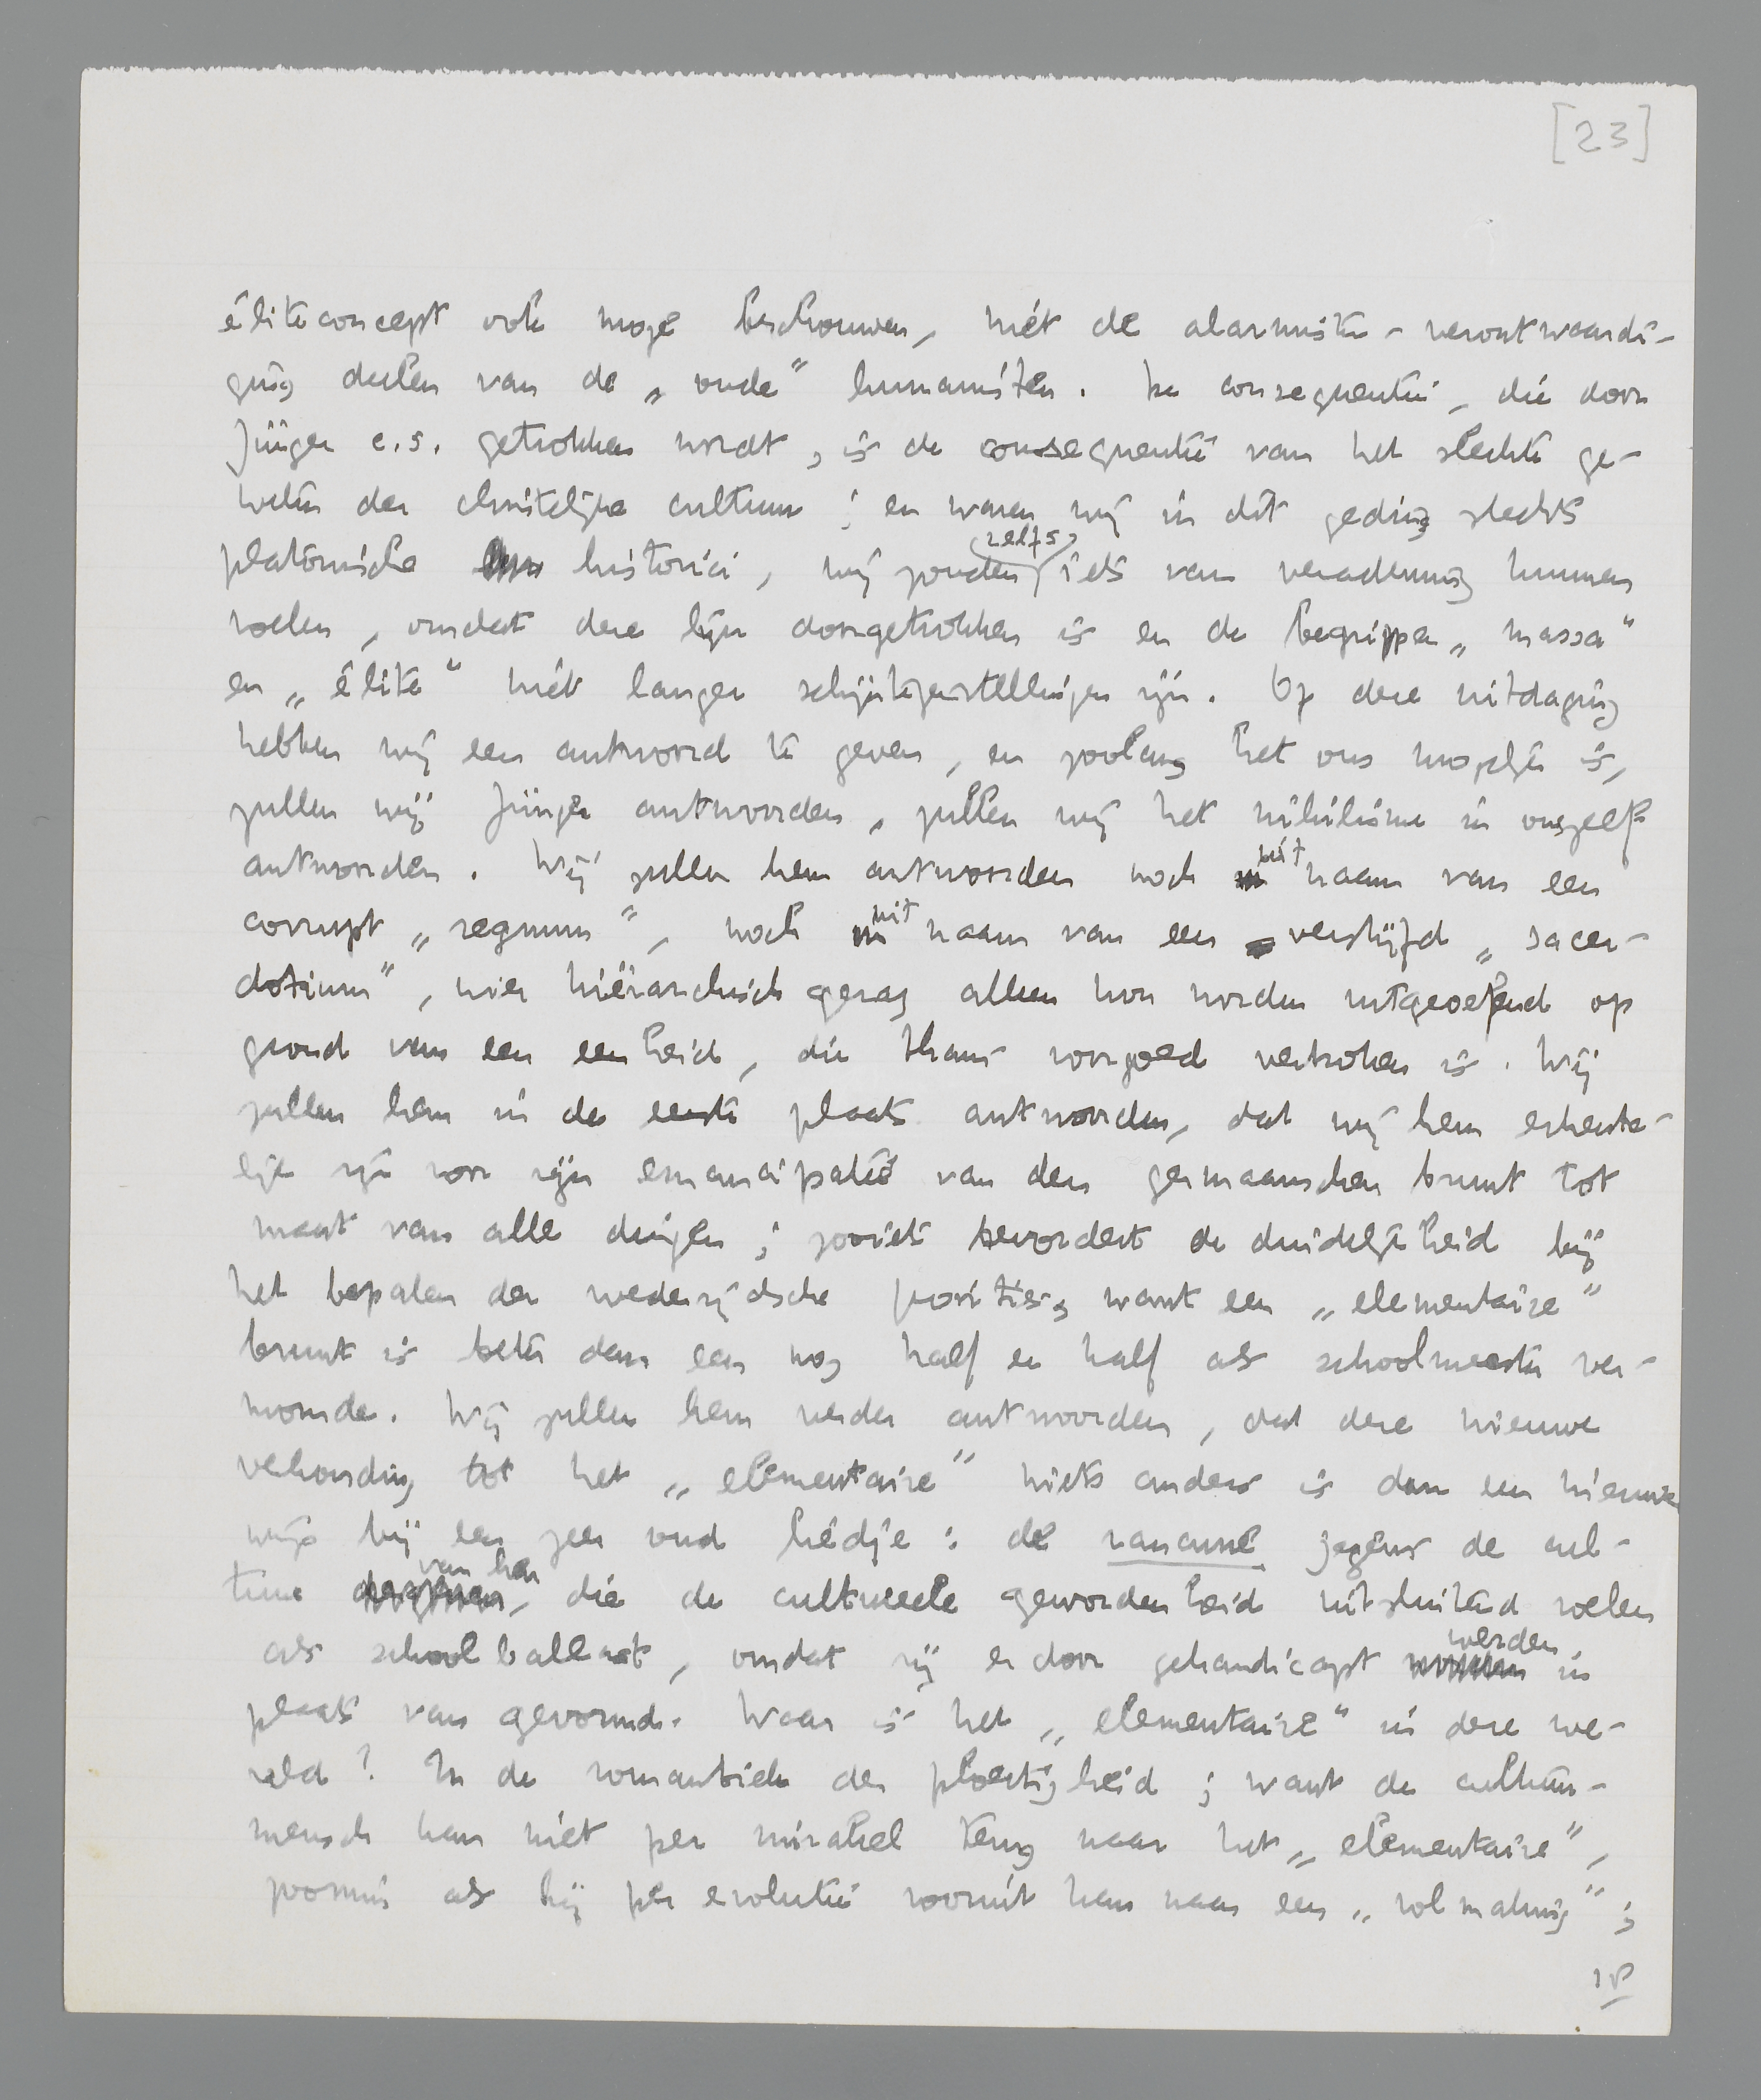 [23]
éliteconcept ook moge beschouwen, niet de alarmistenverontwaardi-
ging deelen van de „oude" humanisten. De consequentie, die door
Jünger c.s. getrokken wordt, is de consequentie van het slechte ge-
weten der christelijke cultuur; en waren wij in dit geding slechts
platonische historici, wij zouden zelfs iets van verademing kunnen
voelen, omdat deze lijn doorgetrokken is en de begrippen „massa"
en „élite" niet langer schijntegenstellingen zijn. Op deze uitdaging
hebben wij een antwoord te geven, en zoolang het ons mogelijk is,
zullen wij Jünger antwoorden, zullen wij het nihilisme in onszelf
antwoorden. Wij zullen hem antwoorden noch uit naam van een
corrupt „regnum", noch uit naam van een verstijfd „sacer-
dotium", wier hiërarchisch gezag alleen kon worden uitgeoefend op
grond van een eenheid, die thans voorgoed verbroken is. Wij
zullen hem in de eerste plaats antwoorden, dat wij hem erkente-
lijk zijn voor zijn emancipatie van den germaanschen bruut tot
maat van alle dingen; zooiets bevordert de duidelijkheid bij
het bepalen der wederzijdsche posities, want een „elementaire"
bruut is beter dan een nog half en half als schoolmeester ver-
momde. Wij zullen hem verder antwoorden, dat deze nieuwe
verhouding tot het „elementaire" niets anders is dan een nieuwe
wijs bij een zeer oud liedje: de rancune jegens de cul-
tuur van hen, die de cultureele gewordenheid uitsluitend voelen
als schoolballast, omdat zij er door gehandicapt werden in
plaats van gevormd. Waar is het „elementaire" in deze we-
reld? In de romantiek der ploertigheid; want de cultuur-
mensch kan niet per mirakel terug naar het „elementaire",
zoomin als hij per evolutie vooruit kan naar een „volmaking";